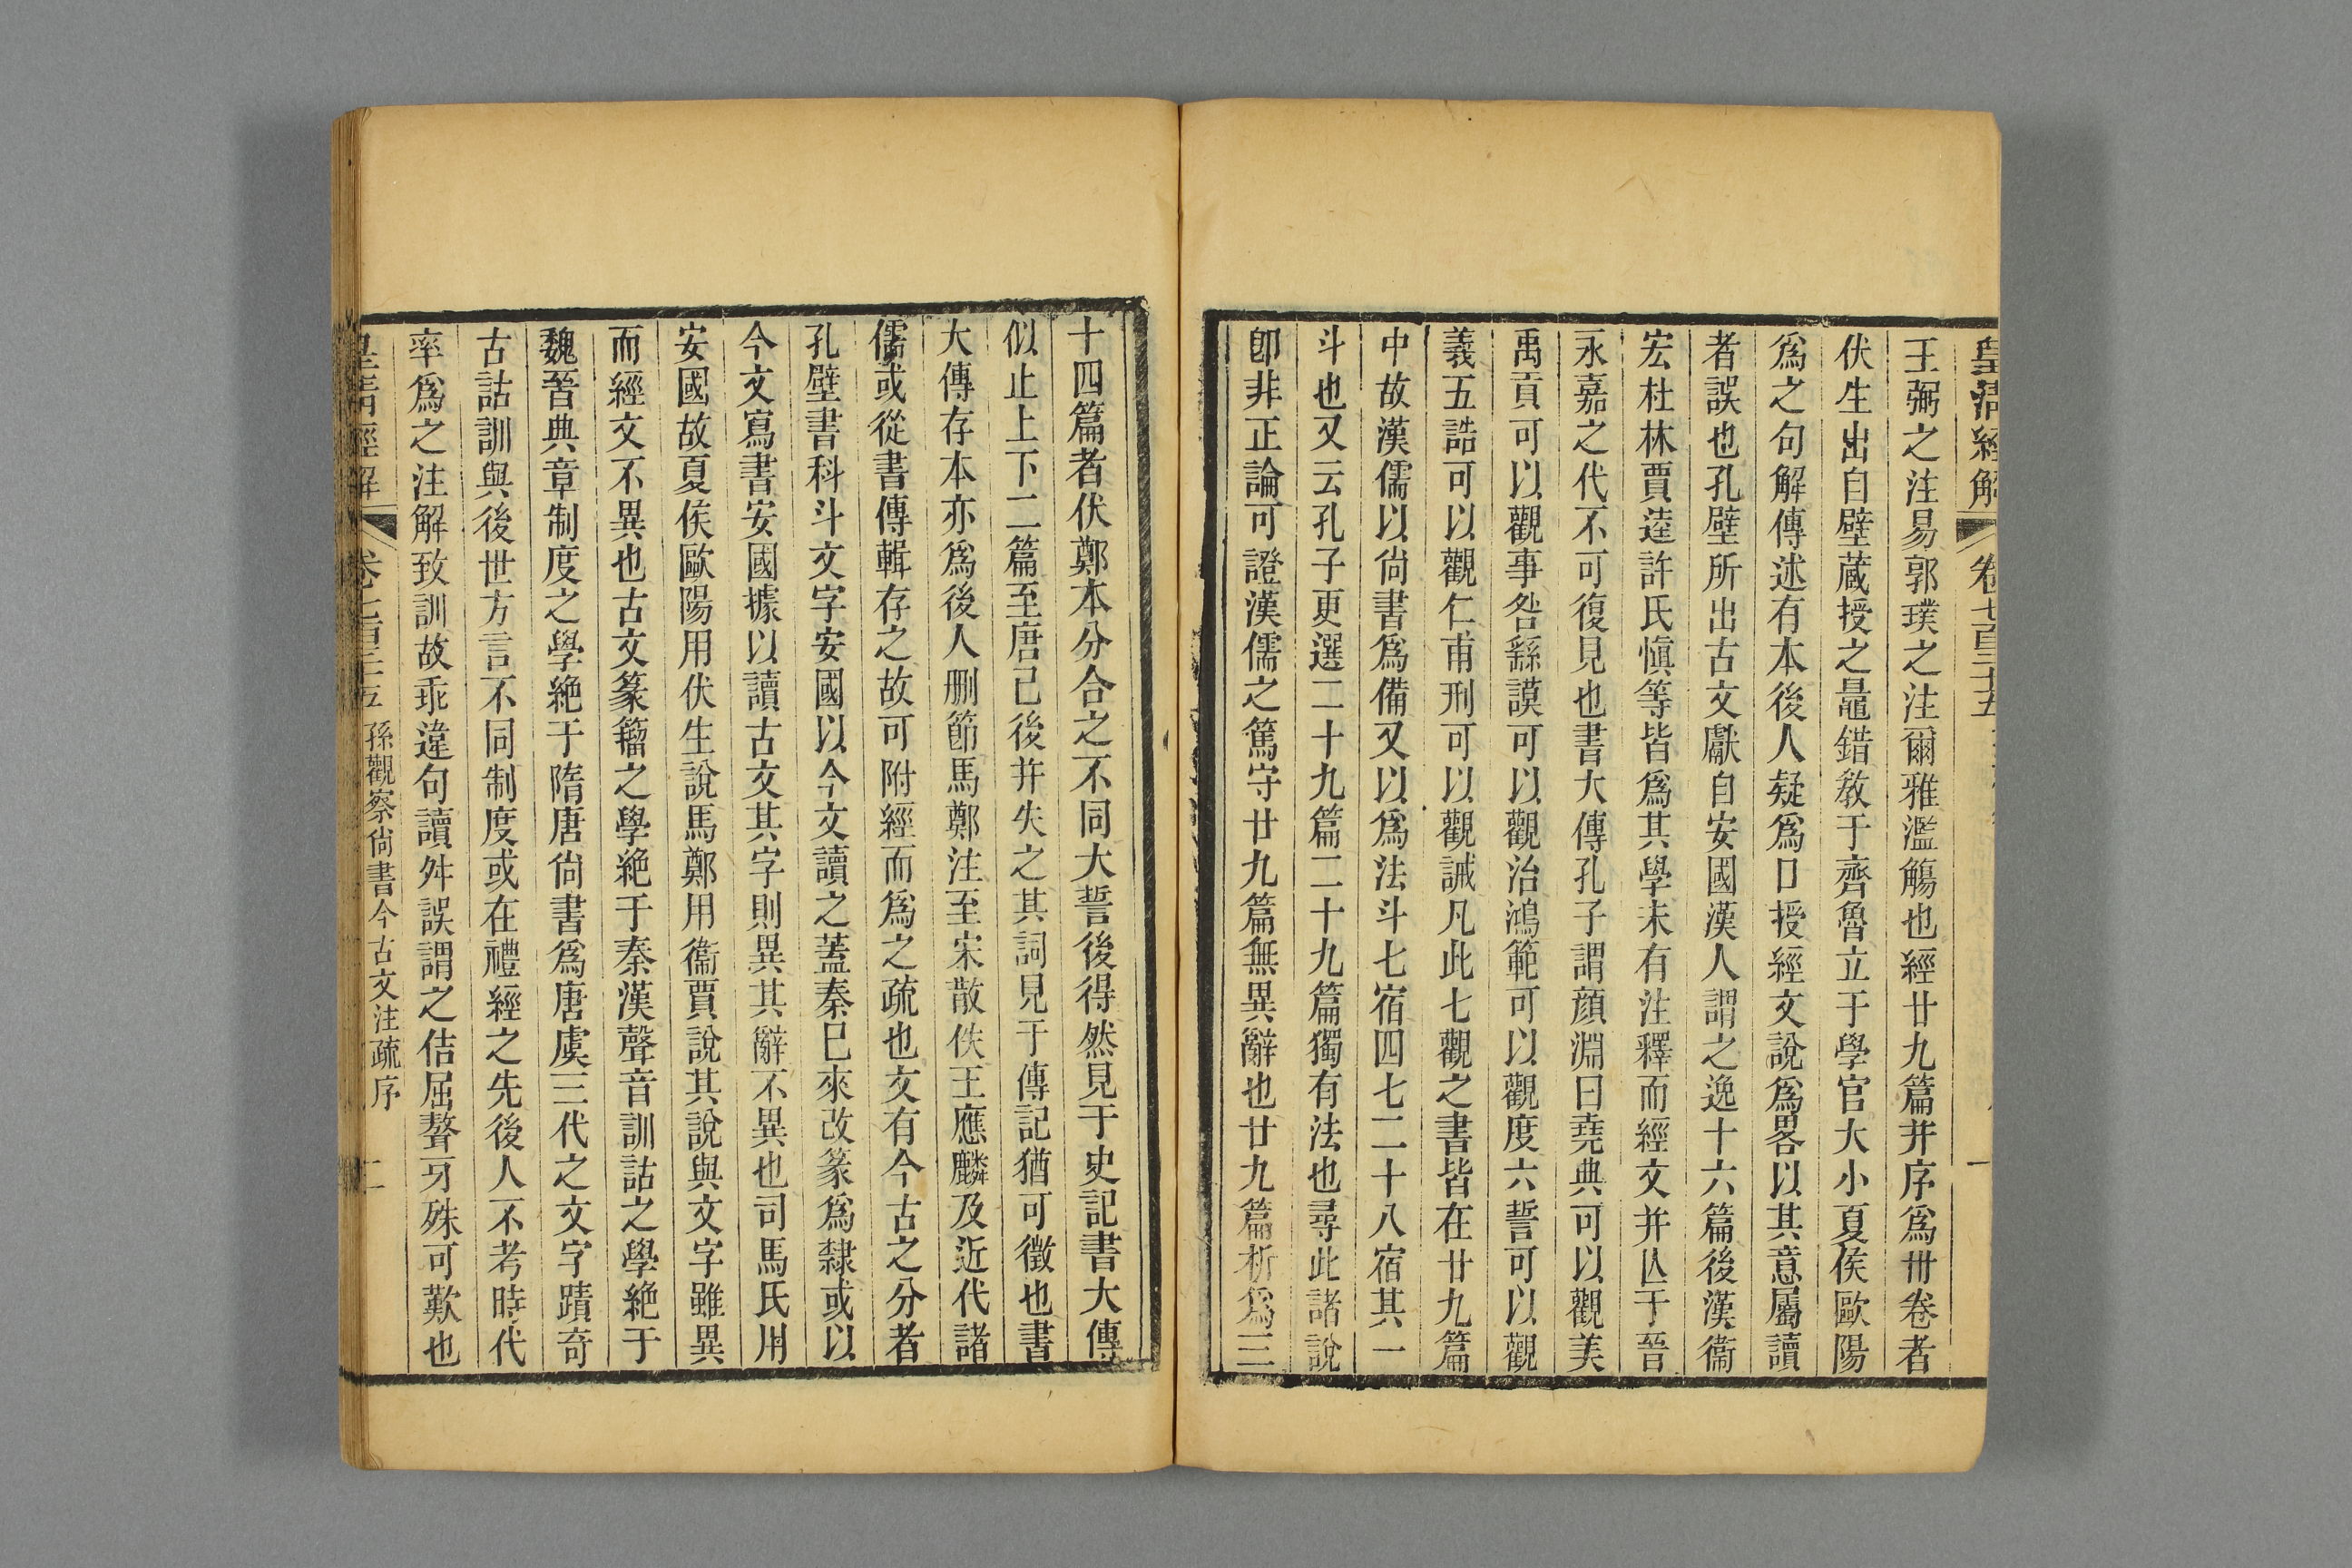 皇清經解
卷七百三十五
一
王弼之注易郭璞之注爾雅濫觴也經廿九篇并序爲卅卷者
伏生出自壁藏授之鼂錯教于齊魯立于學官大小夏侯歐陽
爲之句解傳述有本後人疑爲口授經文說爲畧以其意屬讀
者誤也孔壁所出古文獻自安國漢人謂之逸十六篇後漢衞
宏杜林賈逵許氏愼等皆爲其學未有注釋而經文并亾于晉
永嘉之代不可復見也書大傳孔子謂顏淵曰堯典可以觀美
禹貢可以觀事咎繇謨可以觀治鴻範可以觀度六誓可以觀
義五誥可以觀仁甫刑可以觀誡凡此七觀之書皆在廿九篇
中故漢儒以尙書爲備又以爲法斗七宿四七二十八宿其一
斗也又云孔子更選二十九篇二十九篇獨有法也尋此諸說
卽非正論可證漢儒之篤守廿九篇無異辭也廿九篇析爲三
十四篇者伏鄭本分合之不同大誓後得然見于史記書大傳
似止上下二篇至唐已後幷失之其詞見于傳記猶可徵也書
大傳存本亦爲後人刪節馬鄭注至宋散佚王應麟及近代諸
儒或從書傳輯存之故可附經而爲之疏也文有今古之分者
孔壁書科斗文字安國以今文讀之蓋秦已來改篆爲隸或以
今文寫書安國據以讀古文其字則異其辭不異也司馬氏用
安國故夏侯歐陽用伏生說馬鄭用衞賈說其說與文字雖異
而經文不異也古文篆籀之學絶于秦漢聲音訓詁之學絶于
魏晉典章制度之學絶于隋唐尙書爲唐虞三代之文字蹟奇
古詁訓與後世方言不同制度或在禮經之先後人不考時代
率爲之注解致訓故乖違句讀舛誤謂之佶屈聱牙殊可歎也
皇清經解
卷七百三十五
孫觀察尙書今古文注疏序
二